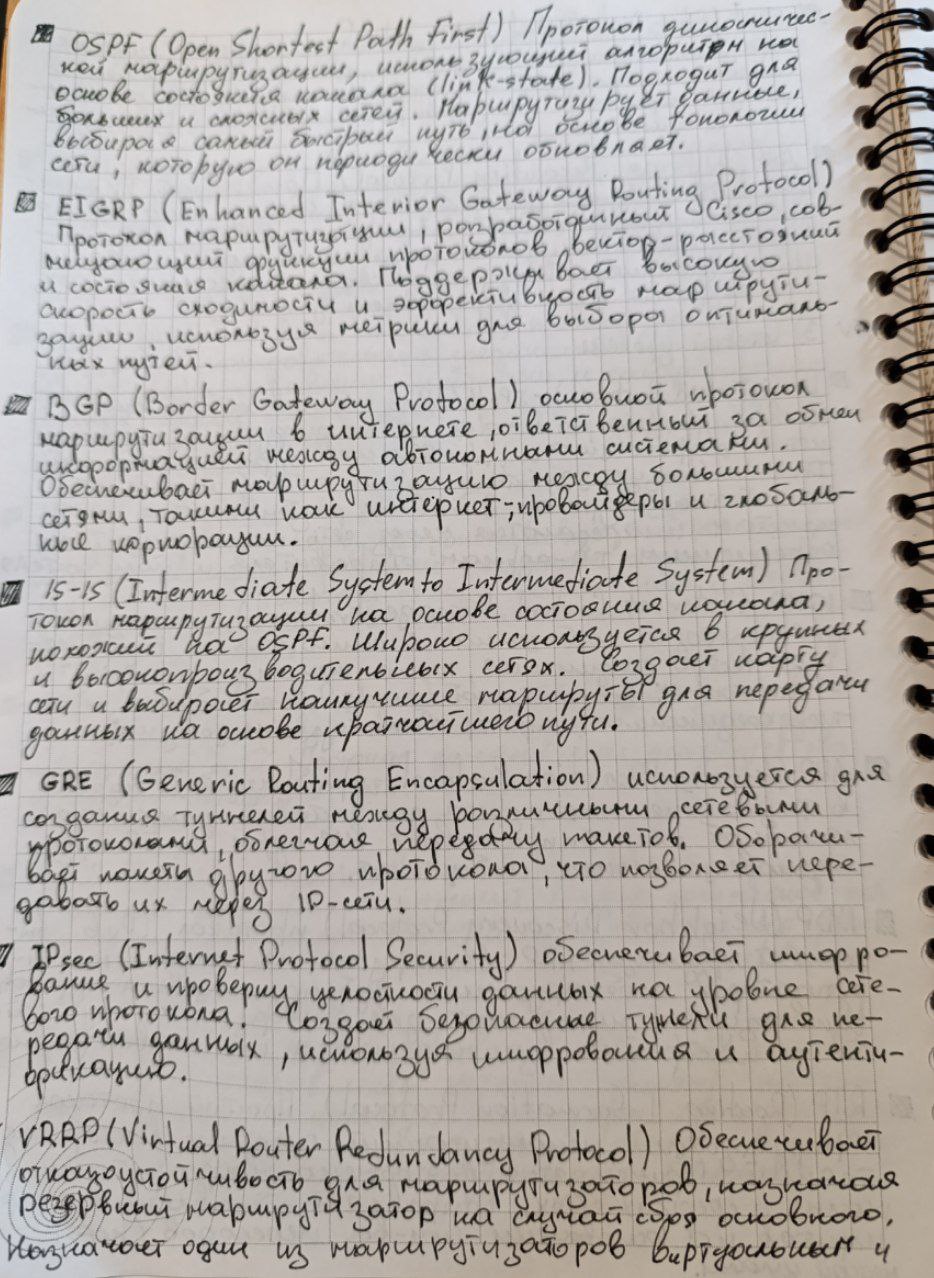 OSPF (Open Shortest Path First) Протокол динамичес-
кой маршрутизации, использующий алгоритм на
основе состояния канала (link-state). Подходит для
больших и сложных сетей. Маршрутизирует данные,
выбирая самый быстрый путь, на основе топологии
сети, которую он периодически обновляет.
EIGRP (Enhanced Interior Gateway Routing Protocol)
Протокол маршрутизации, разработанный Cisco, сов-
мещающий функции протоколов вектор-расстояний
и состояния канала. Поддерживает высокую
скорость сходимости и эффективность маршрути-
зации, используя метрики для выбора оптималь-
ных путей.
BGP (Border Gateway Protocol) основной протокол
маршрутизации в интернете, ответственный за обмен
информацией между автономными системами.
Обеспечивает маршрутизацию между большими
сетями, такими как интернет-провайдеры и глобаль-
ные корпорации.
IS-IS (Intermediate System to Intermediate System) Про-
токол маршрутизации на основе состояния канала,
похожий на OSPF. Широко используется в крупных
и высокопроизводительных сетях. Создает карту
сети и выбирает наилучшие маршруты для передачи
данных на основе кратчайшего пути.
GRE (Generic Routing Encapsulation) используется для
создания туннелей между различными сетевыми
протоколами, облегчая передачу пакетов. Оборачи-
вает пакеты другого протокола, что позволяет пере-
давать их через IP-сети.
IPsec (Internet Protocol Security) обеспечивает шифро-
вание и проверку целостности данных на уровне сете-
вого протокола. Создает безопасные тунели для пе-
редачи данных, используя шифрования и аутенти-
фикацию.
VRRP (Virtual Router Redundancy Protocol) Обеспечивает
отказоустойчивость для маршрутизаторов, назначая
резервный маршрутизатор на случай сбоя основного.
Назначает один из маршрутизаторов виртуальным и